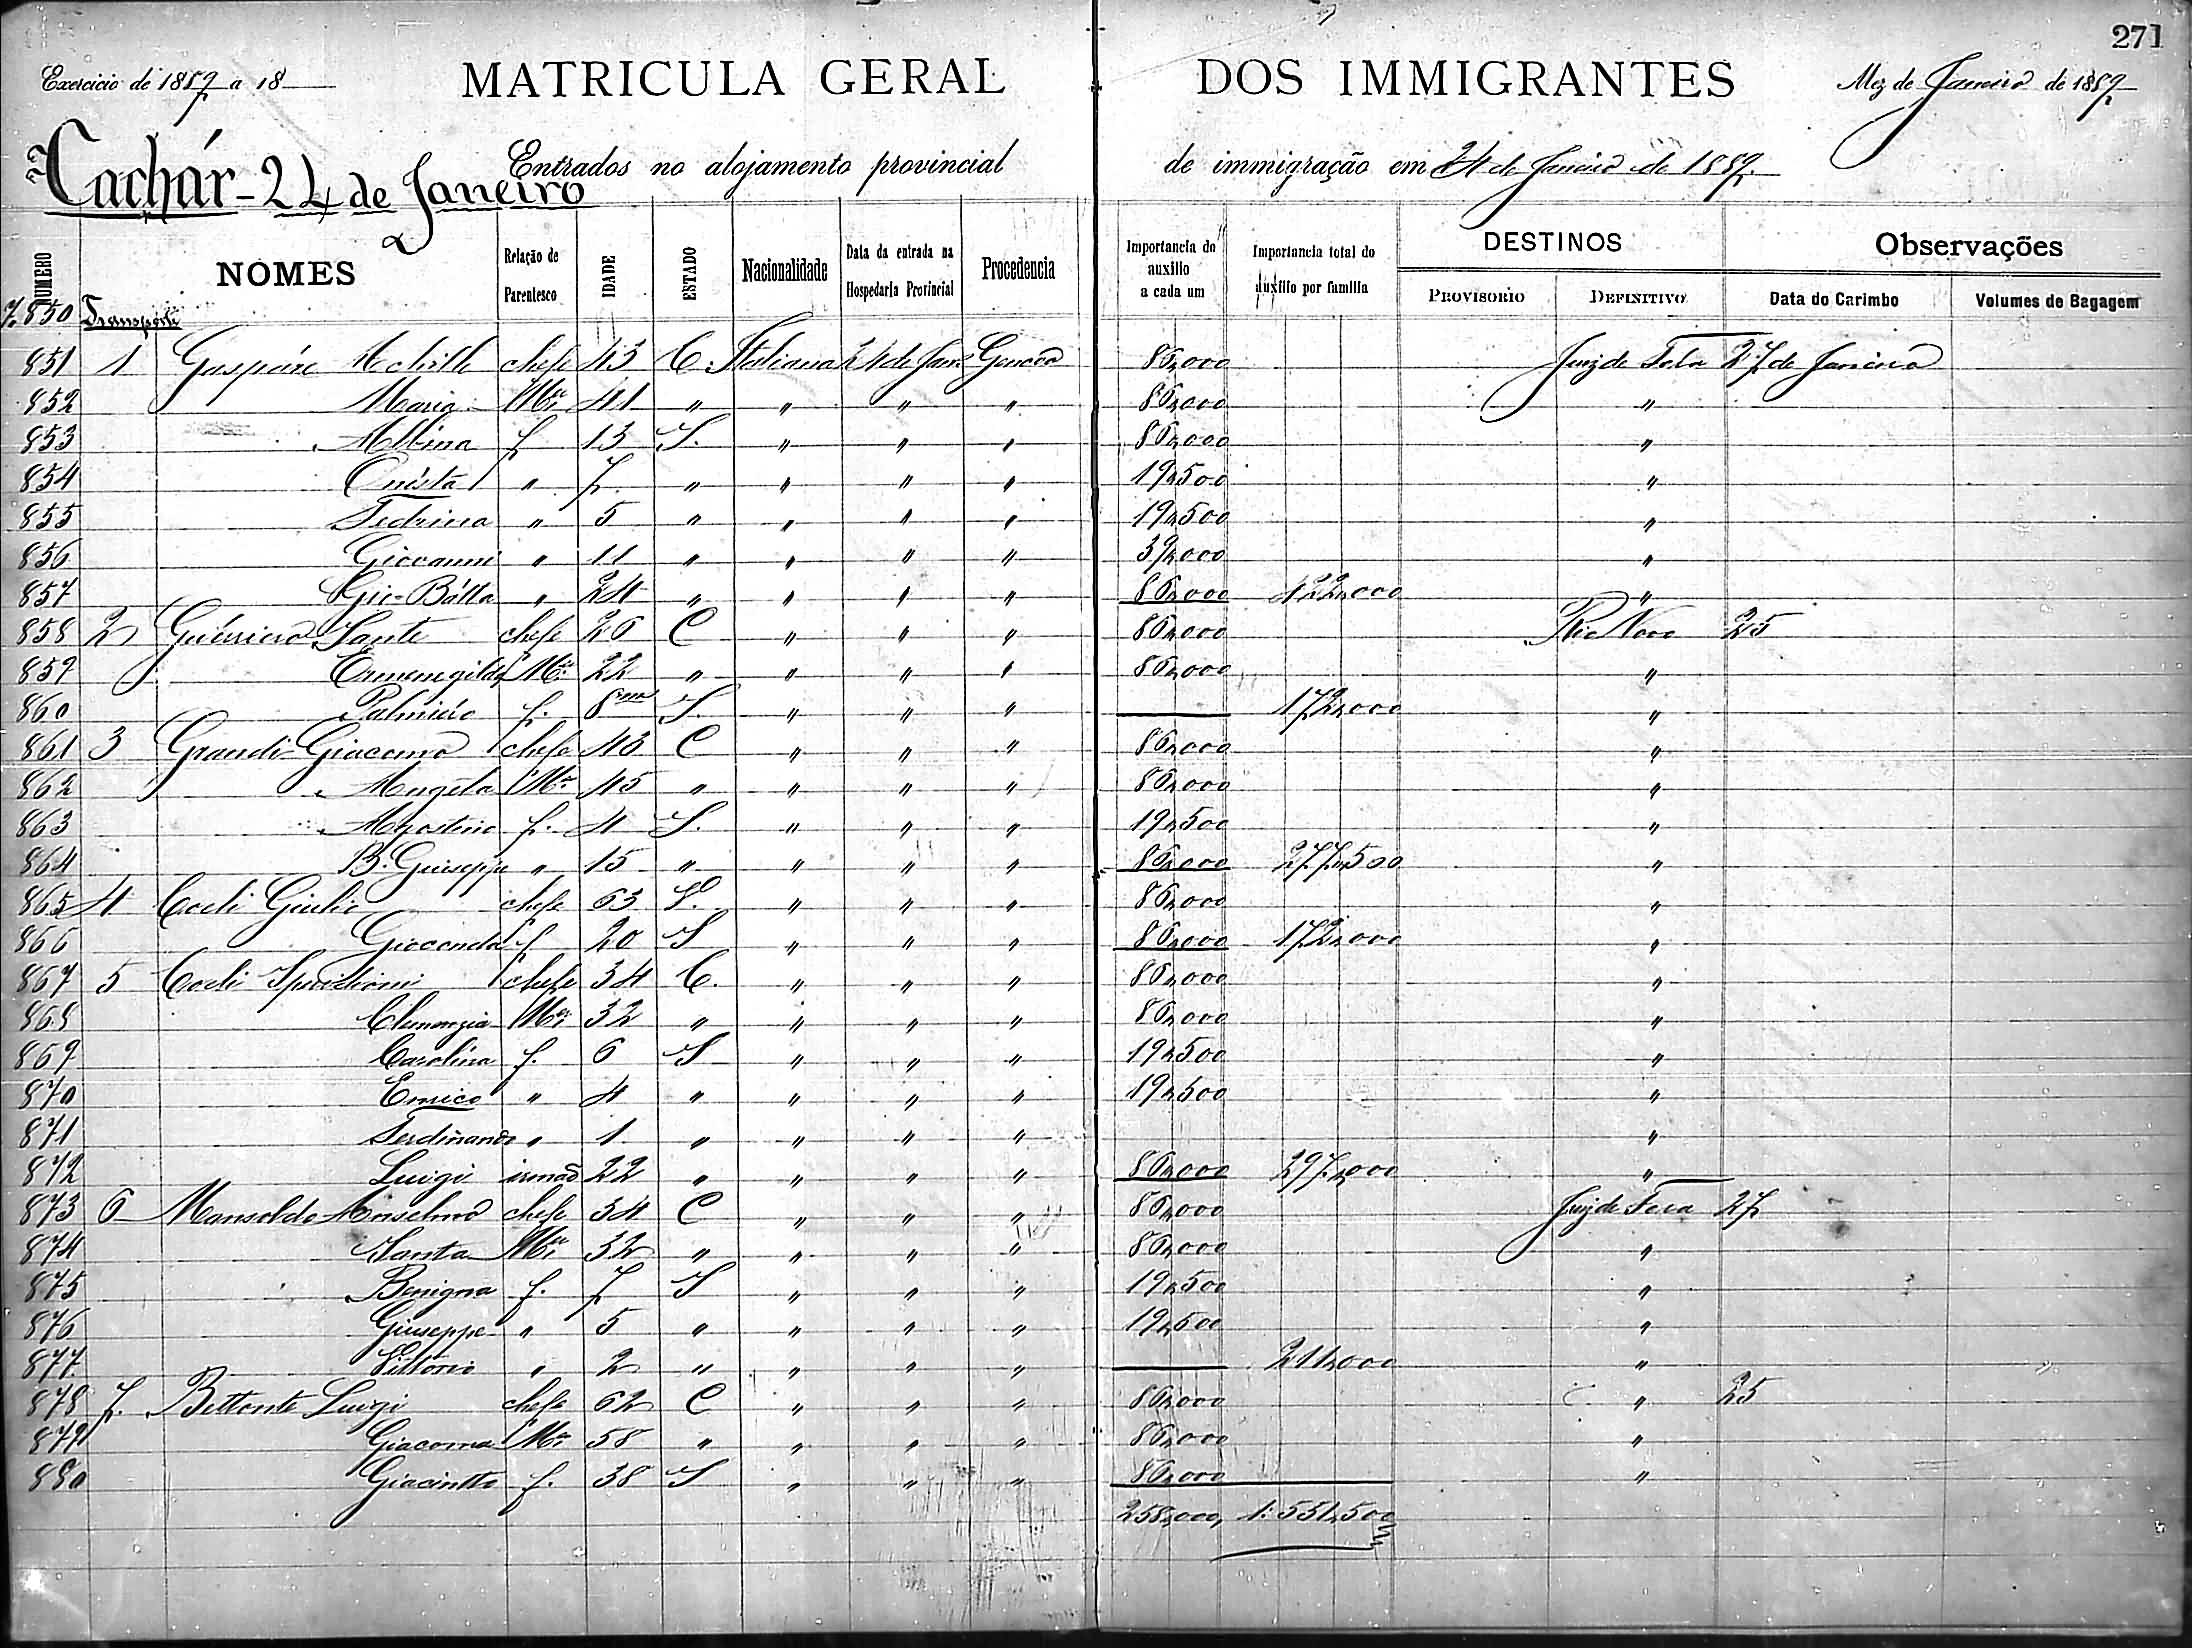 271
Exercicio de 1889 a 18
MATRICULA GERAL DOS IMMIGRANTES
Mez de Janeiro de 1889
Entrados no alojamento provincial de immigração em 24 de Janeiro de 1889.
Cachár - 24 de Janeiro
NUMERO NOMES Relação de Parentesco IDADE ESTADO Nacionalidade Data da entrada na Hospedaria Provincial Procedencia Importancia do auxilio a cada um Importancia total do Auxilio por familia DESTINOS PROVISORIO DEFINITIVO Observações Data do Carimbo Volumes de Bagagem
850 Transporte
851 1 Gaspáre Achille chefe 43 C. Italiana 24 de Jan. Genova 86,000 Juiz de Fóra 27 de Janeiro
852 Maria Mer 41 " " " " 86,000 "
853 Albina f 13 S. " " " 86,000 "
854 Onésta " 7 " " " " 19,500 "
855 " 5 " " " " 19,500 "
856 Giovanni " 11 " " " " 39,000 "
857 Gio-Bátta " 24 " " " " 86,000 422,000 "
858 2 Guérriero Sante chefe 26 C " " " 86,000 Rio Novo 25
859 Ermenegilda Mer 22 " " " " 86,000 "
860 f. 8 S. " " " 172,000 "
861 3 Grandi Giacomo chefe 43 C " " " 86,000 "
862 Angela Mer 45 " " " " 86,000 "
863 Agostino f. 4 S. " " " 19,500 "
864 B. Giuseppe " 15 " " " " 86,000 277,500 "
865 4 Coeli Giulio chefe 63 " " " 86,000 "
866 Gioconda f 20 S " " " 86,000 172,000 "
867 5 Coeli chefe 34 C. " " " 86,000 "
868 Clemenzia Mer 32 " " " " 86,000 "
869 Carolina f. 6 S " " " 19,500 "
870 Enrico " 4 " " " " 19,500 "
871 Ferdinando " 1 " " " " "
872 Luigi irmaõ 22 " " " " 86,000 297,000 "
873 6 Mansoldo Anselmo chefe 34 C " " " 86,000 Juiz de Fora 27
874 Santa Mer 32 " " " " 86,000 "
875 Benigna f. 7 S " " " 19,500 "
876 Giuseppe " 5 " " " " 19,500 "
877 Vittorio " 2 " " " " 211,000 "
878 7. Bettonte Luigi chefe 62 C " " " 86,000 " 25
879 Giacoma Mer 58 " " " " 86,000 "
880 Giacintto f. 38 S " " " 86,000 "
258,000, 1:551,500